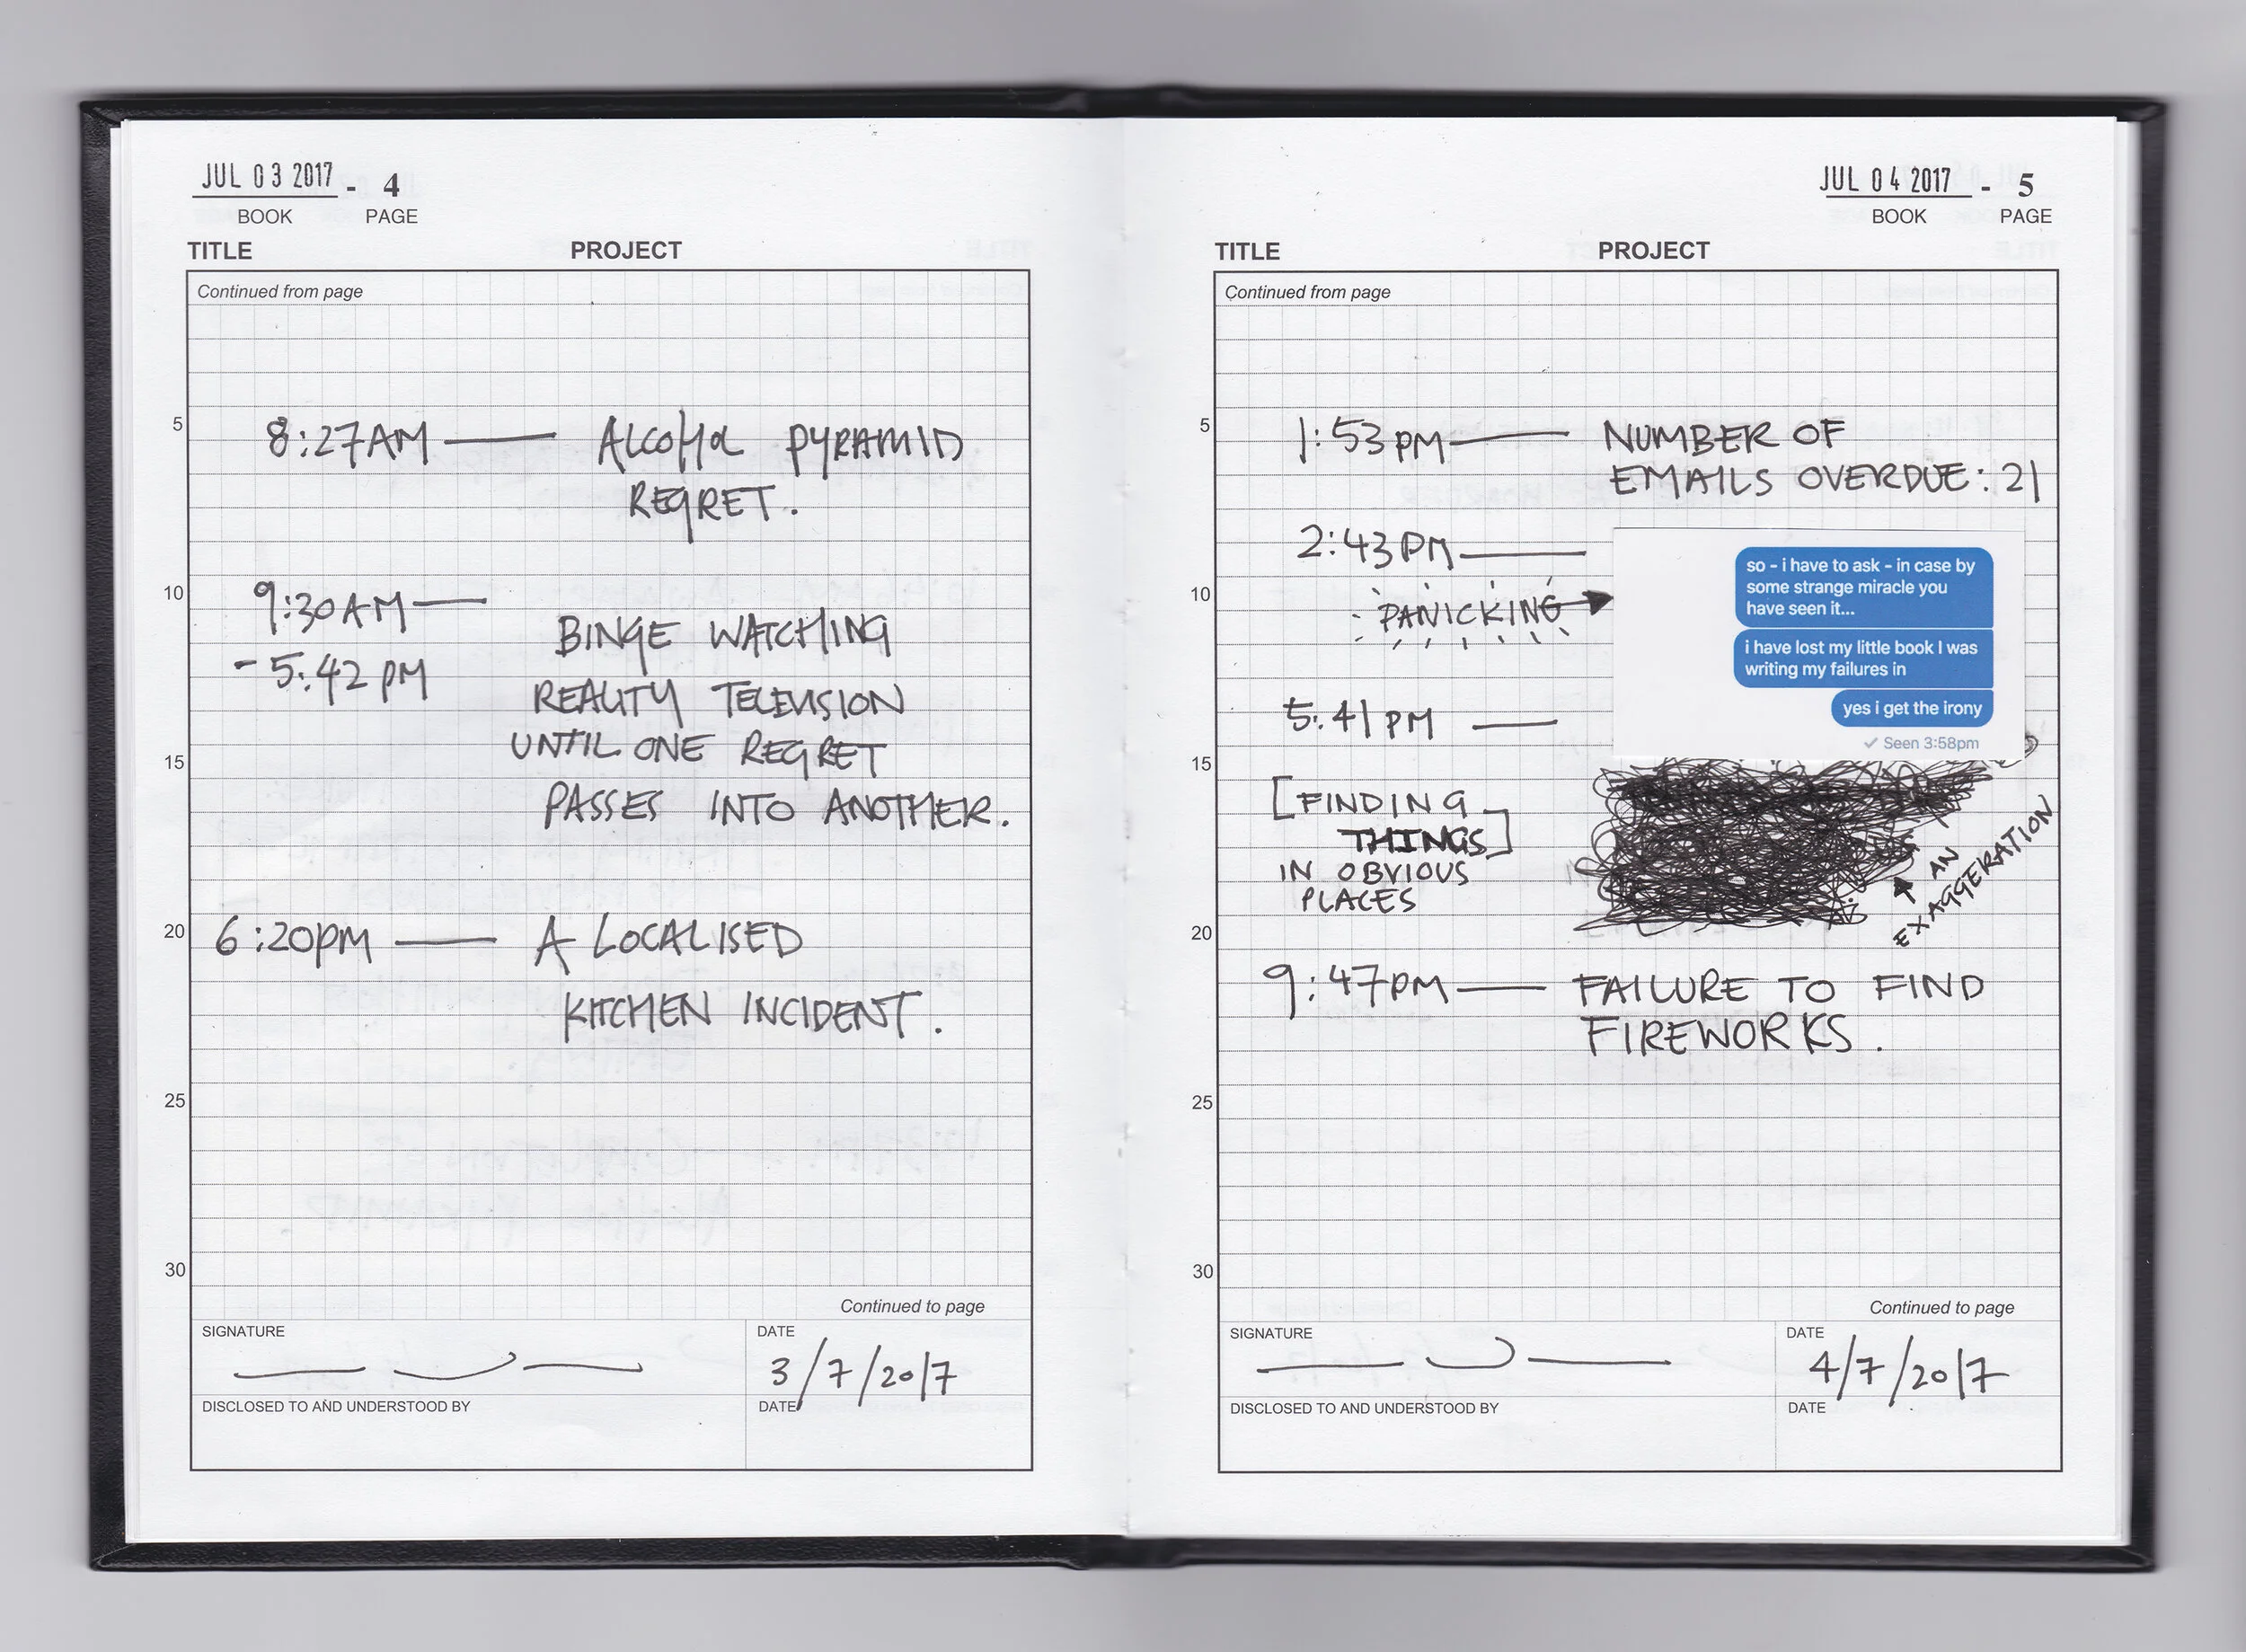 JUL 03 2017 - 4
BOOK PAGE
TITLE PROJECT
Continued from page
5
8:27AM — ALCOHOL PYRAMID
REGRET.
10
9:30AM —
- 5:42 PM
BINGE WATCHING
REALITY TELEVISION
UNTIL ONE REGRET
15
PASSES INTO ANOTHER.
20
6:20PM — A LOCALISED
KITCHEN INCIDENT.
25
30
Continued to page
SIGNATURE DATE
3/7/2017
DISCLOSED TO AND UNDERSTOOD BY DATE
JUL 04 2017 - 5
BOOK PAGE
TITLE PROJECT
Continued from page
5
1:53PM — NUMBER OF
EMAILS OVERDUE: 21
2:43PM —
10
PANICKING
so - i have to ask - in case by
some strange miracle you
have seen it...
i have lost my little book I was
writing my failures in
yes i get the irony
✓ Seen 3:58pm
5:41PM —
15
[FINDING
THINGS]
IN OBVIOUS
PLACES
AN
EXAGGERATION
20
9:47PM — FAILURE TO FIND
FIREWORKS.
25
30
Continued to page
SIGNATURE DATE
4/7/2017
DISCLOSED TO AND UNDERSTOOD BY DATE